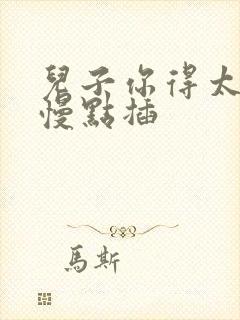 兒子你得太
慢點插
馬斯